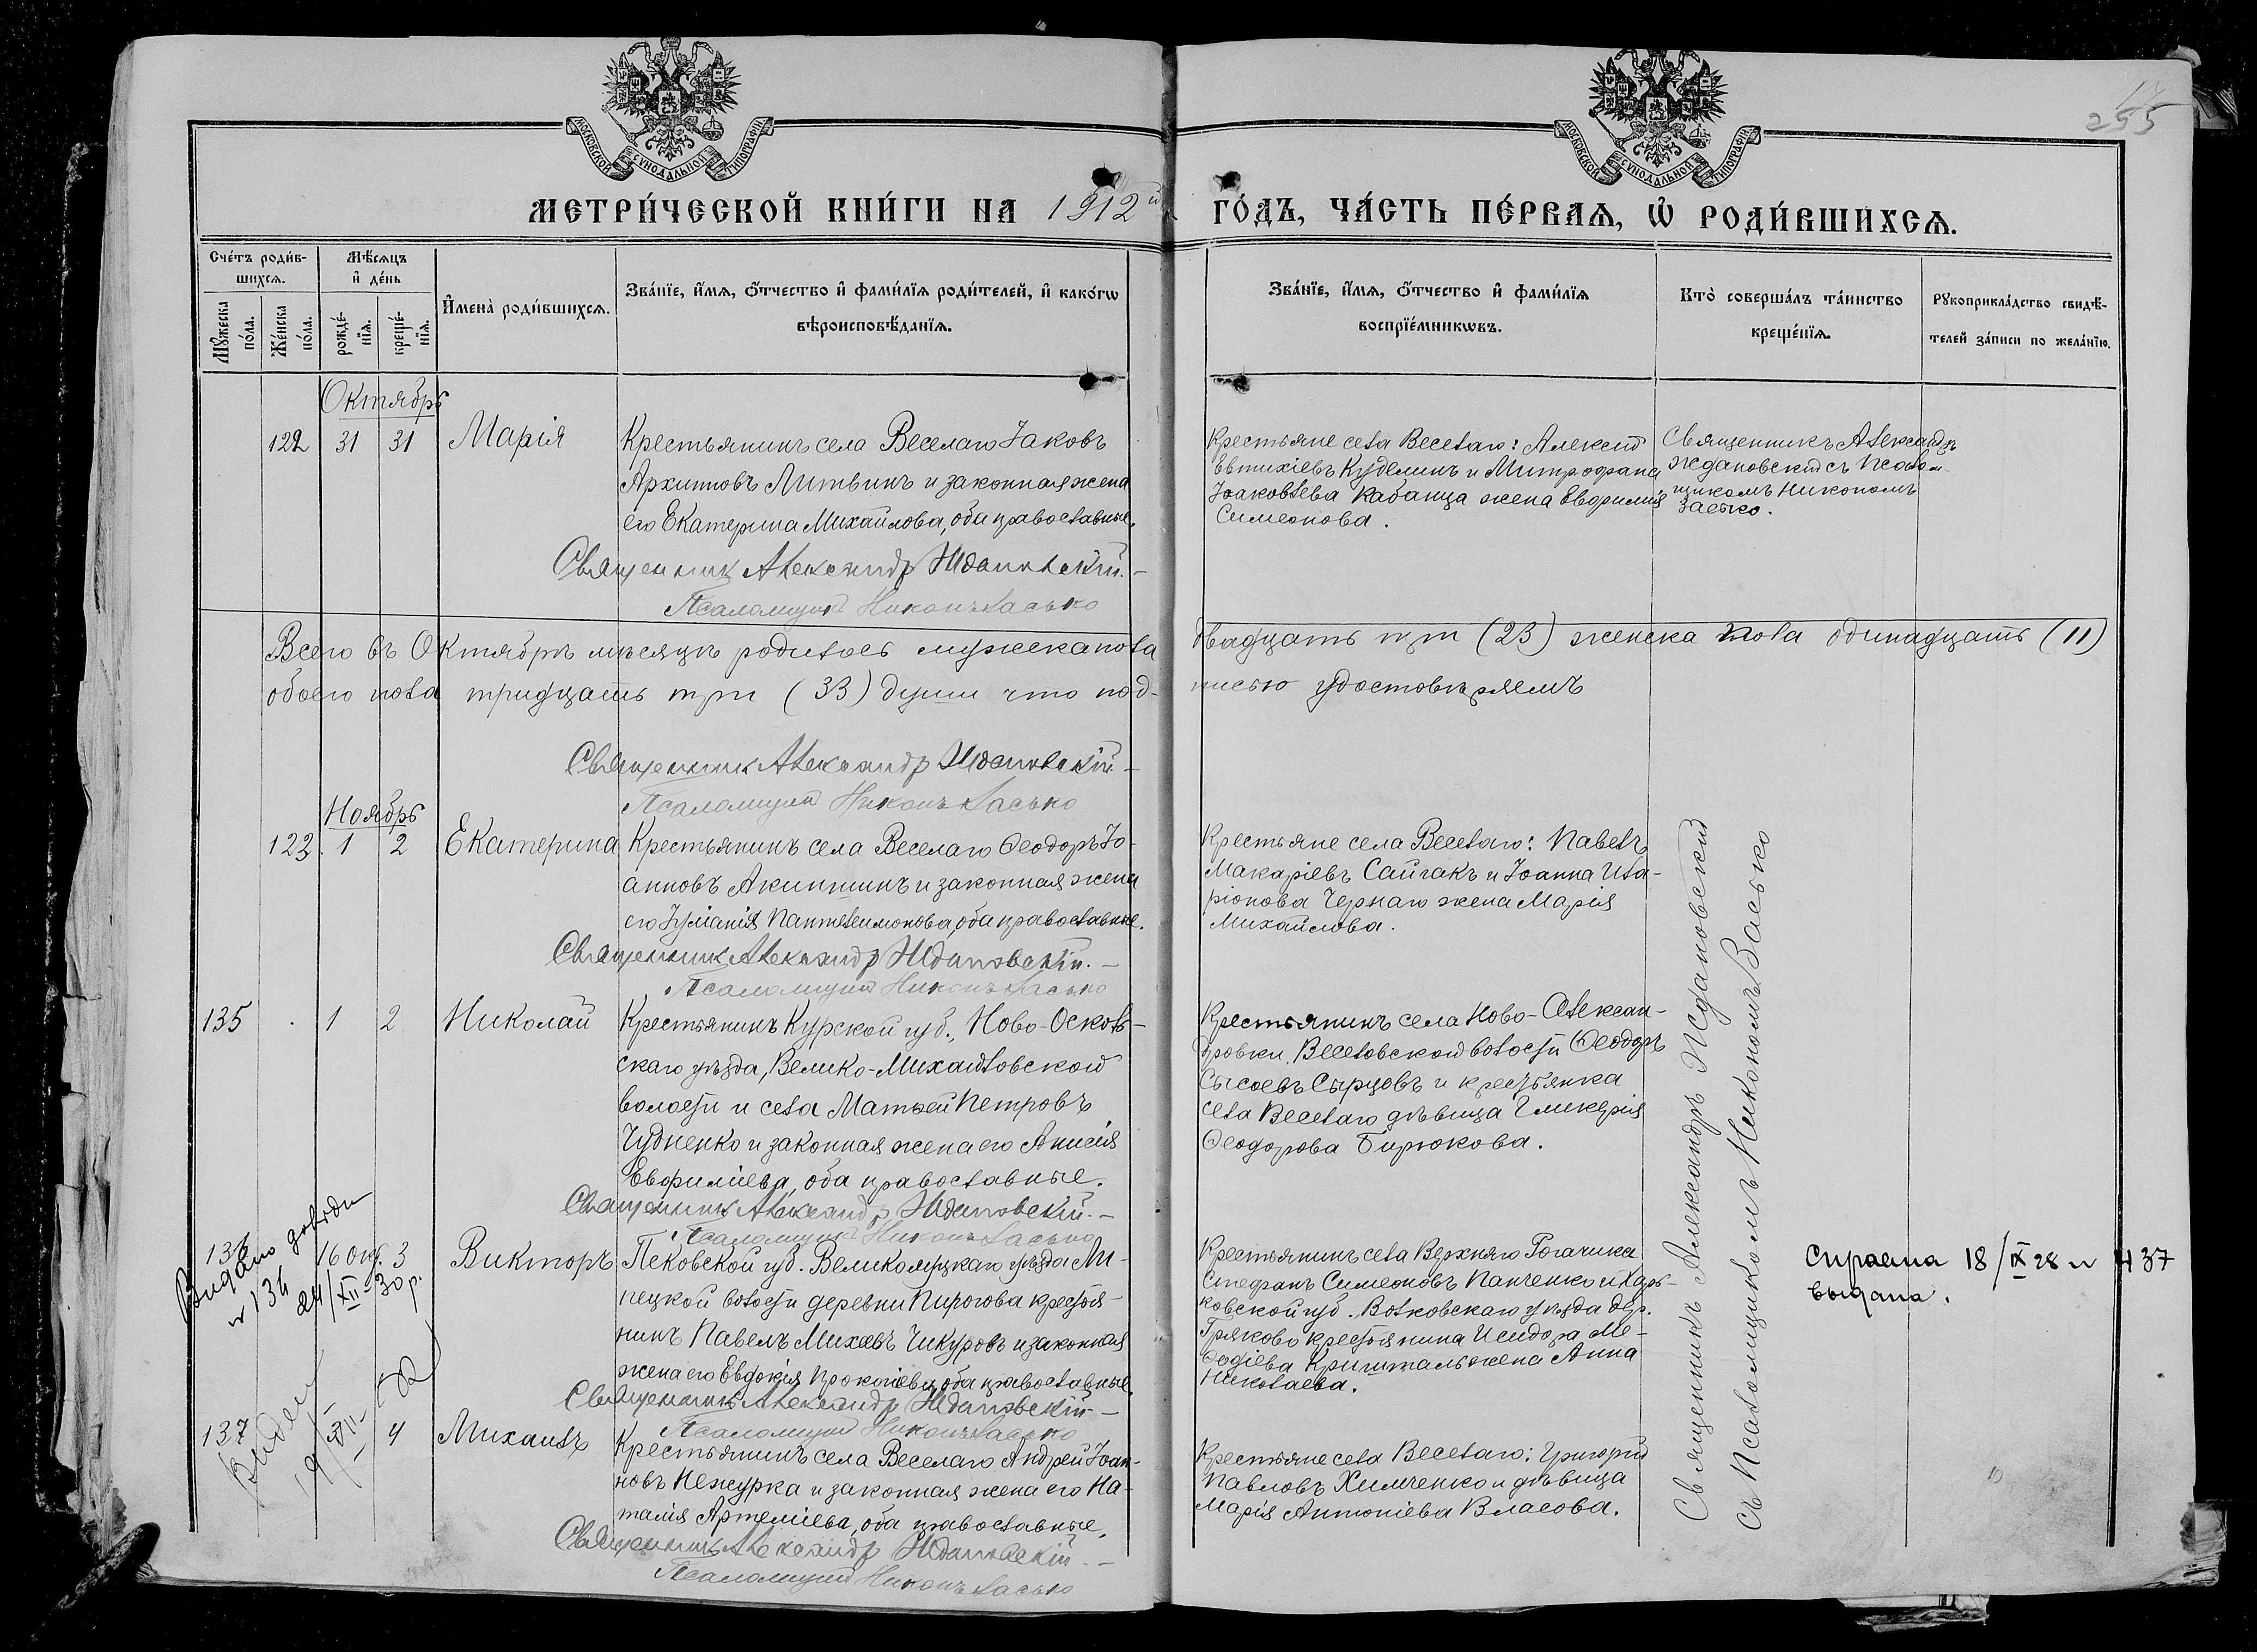 255
МОСКОВСКОЙ СУНОДАЛЬНОЙ ТИПОГРАФІИ
МОСКОВСКОЙ СУНОДАЛЬНОЙ ТИПОГРАФІИ
МЕТРИ́ЧЕСКОЙ КНИ́ГИ НА 1912й ГО́ДЪ, ЧА́СТЬ ПЕ́РВАЯ, Ѡ РОДИ́ВШИХСЯ.
Сче́тъ роди́в-
шихся.
Мѣ́сяцъ
и҆ де́нь
Мꙋ́жеска
по́ла.
Же́нска
по́ла.
рожде́-
нїя.
креще́-
нїя.
И҆мена̀ роди́вшихся.
Зва́нїе, и҆́мя, ѻ҆́тчество и҆ фами́лїя роди́телей, и҆ како́гѡ
вѣроисповѣ́данїя.
Зва́нїе, и҆́мя, ѻ҆́тчество и҆ фами́лїя
воспрїе́мникѡвъ.
Кто̀ соверша́лъ та́инство
креще́нїя.
Рꙋкоприкла́дство свидѣ́-
телей за́писи по жела́нїю.
Октябрь
122 31 31 Марія
Крестьянинъ села Веселаго Іаковъ
Архипповъ Литвинъ и законная жена
его Екатерина Михайлова, оба православные.
Священник Александр Ждановскій.-
Псаломщик Никонъ Засько
Крестьяне села Веселаго: Алексій
Евтихіевъ Куделинъ и Митрофана
Іоаковлева Кабанца жена Евфимія
Симеонова.
Священникъ Александръ
Ждановскій съ Псалом-
щикомъ Никономъ
Засько.
Всего въ Октябрѣ мѣсяцѣ родилось мужска пола двадцать три (23) женска пола одинадцать (11)
обоего пола тридцать три (33) души что под- писью удостовѣряемъ
Священник Александр Ждановскій -
Псаломщик Никонъ Засько
Ноябрь
123. 1 2 Екатерина
Крестьянинъ села Веселаго Ѳеодоръ Іо-
анновъ Акиншинъ и законная жена
его Іуліанія Пантелеимонова, оба православные.
Священник Александр Ждановскій. -
Псаломщик Никонъ Засько
Крестьяне села Веселаго: Павелъ
Макаріевъ Сайгакъ и Іоанна Ила-
ріонова Чернаго жена Марія
Михайлова.
135 1 2 Николай
Крестьянинъ Курской губ., Ново-Осколь-
скаго уѣзда, Велико-Михайловской
волости и села Матѳей Петровъ
Чудненко и законная жена его Анисія
Евфиміева, оба православные.
Священник Александр Ждановскій. -
Псаломщик Никонъ Засько
Крестьянинъ села Ново-Алексан-
дровки, Веселовской волости Ѳеодоръ
Сысоевъ Сырцовъ и крестьянка
села Веселаго дѣвица Гликерія
Ѳеодорова Бирюкова.
136 16 Окт. 3 Викторъ
Псковской губ. Великолуцкаго уѣзда Ли-
нецкой волости деревни Пирогова крестья-
нинъ Павелъ Михѣевъ Чикуровъ и законная
жена его Евдокія Прокопіева, оба православные.
Священник Александр Ждановскій -
Псаломщик Никонъ Засько
Крестьянинъ села Верхняго Рогачика
Стефанъ Симеоновъ Панченко и Харь-
ковской губ. Волковскаго уѣзда дер.
Гряково крестьянина Исидора Ме-
ѳодіева Кришталь жена Анна
Николаева.
Видано довідку
№ 136
24/XII 30 р.
Справка 18/IX 28 № 437
выдана.
137 4 Михаилъ
Крестьянинъ села Веселаго Андрей Іоан-
новъ Нежурка и законная жена его На-
талія Артеміева, оба православные.
Священникъ Александр Ждановскій -
Псаломщик Никонъ Засько
Крестьяне села Веселаго: Григорій
Павловъ Химченко и дѣвица
Марія Антоніева Власова.
Священникъ Александръ Ждановскій
съ Псаломщикомъ Никономъ Засько